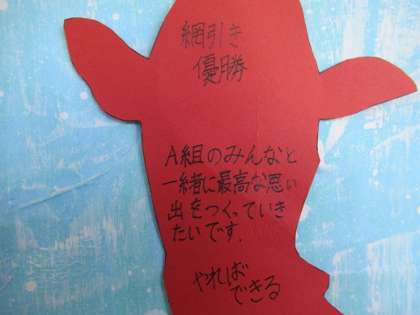 綱引き
優勝
A組のみんなと
一緒に最高な思い
出をつくっていき
たいです.
やれば
できる